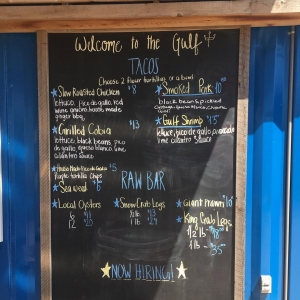 Welcome to the Gulf
TACOS
Choose 2 flour tortillas or a bowl
Slow Roasted Chicken $8
lettuce, pico de gallo, red
Smoked Pork 10
black beans, pickled
Grilled Cobia $13
lettuce, black beans, pico
de gallo, queso blanco, lime
cilantro sauce
Gulf Shrimp $13
lettuce, pico de gallo, avocado
lime cilantro sauce
House Made Pico de Gallo $5
tortilla chips
Seaweed $6
RAW BAR
Local Oysters
6
12
Snow Crab Legs
1/2 lb
1 lb
Giant Prawn 10
King Crab Legs
1/2 lb - 18
1 lb - 35
NOW HIRING!